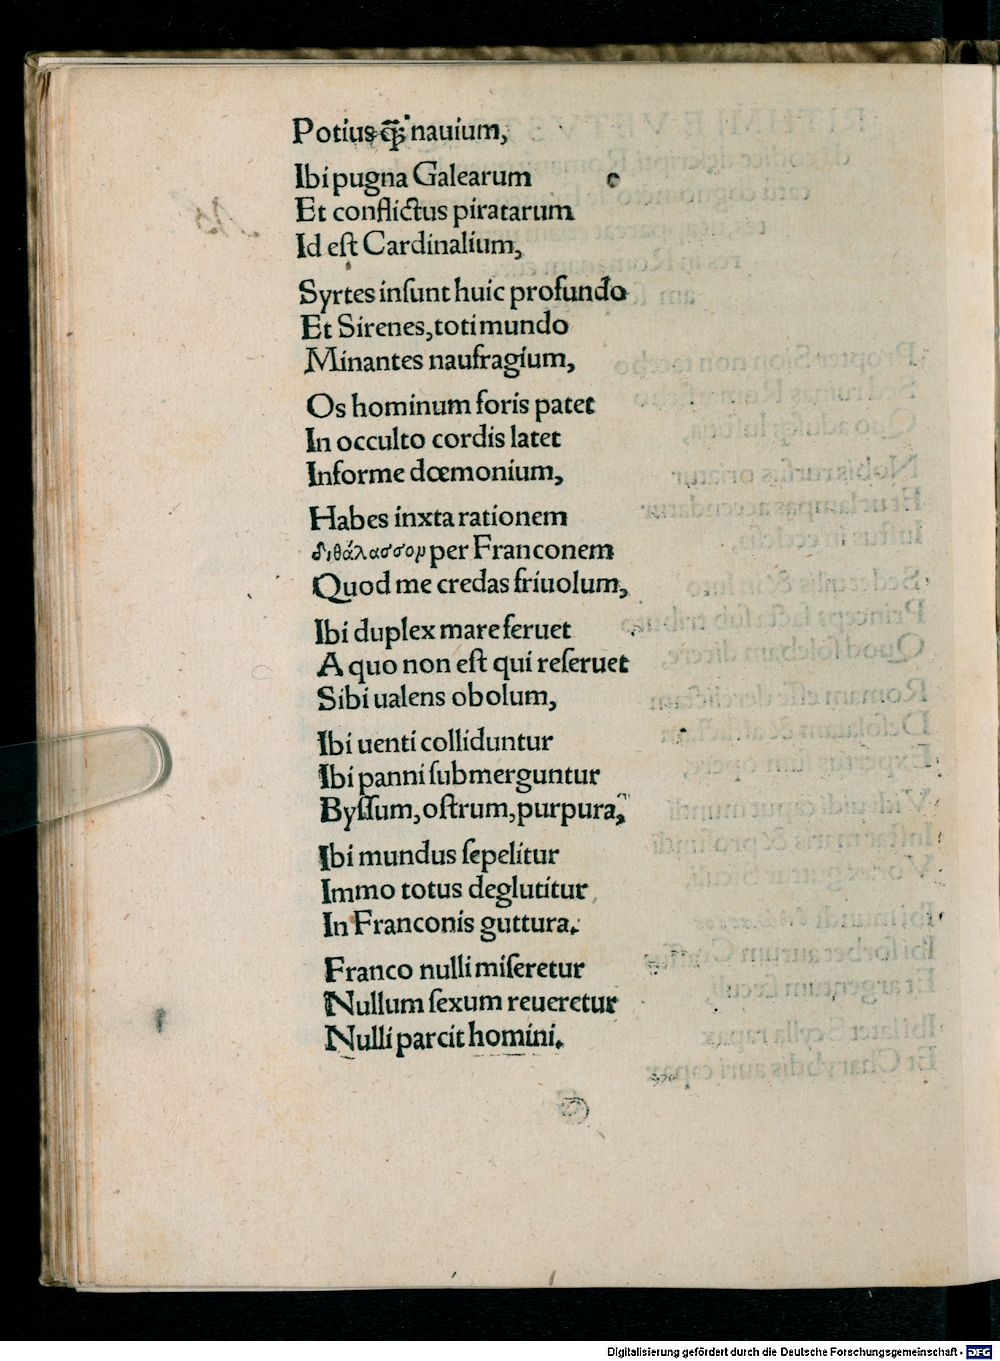 Potius qꝫ nauium,
Ibi pugna Galearum
Et conflictus piratarum
Id est Cardinalium,
Syrtes insunt huic profundo
Et Sirenes, toti mundo
Minantes naufragium,
Os hominum foris patet
In occulto cordis latet
Informe dœmonium,
Habes inxta rationem
διθάλασσον per Franconem
Quod me credas friuolum,
Ibi duplex mare feruet
A quo non est qui reseruet
Sibi ualens obolum,
Ibi uenti colliduntur
Ibi panni submerguntur
Byssum, ostrum, purpura,
Ibi mundus sepelitur
Immo totus deglutitur
In Franconis guttura.
Franco nulli miseretur
Nullum sexum reueretur
Nulli parcit homini.
Digitalisierung gefördert durch die Deutsche Forschungsgemeinschaft - DFG